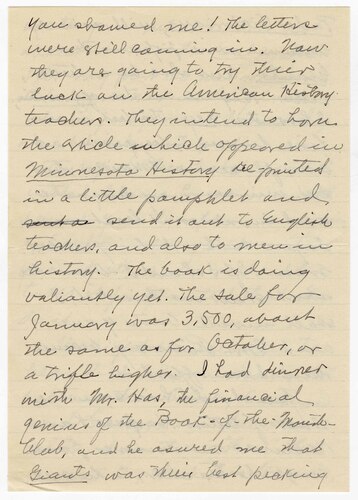 You showed me! The letters
were still coming in. Now
they are going to try their
luck on the American History
teachers. They intend to have
the article which appeared in
Minnesota History re-printed
in a little pamphlet and
send it out to English
teachers, and also to men in
history. The book is doing
valiantly yet. The sale for
January was 3,500, about
the same as for October, or
a trifle higher. I had dinner
with Mr. Has, the financial
genius of the Book-of-the-Month-
Club, and he assured me that
Giants was their best